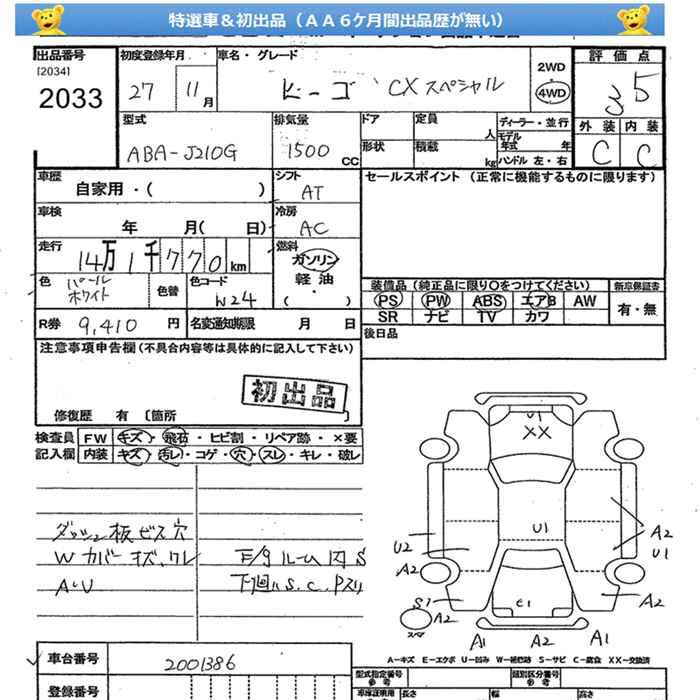 特選車＆初出品（ＡＡ６ケ月間出品歴が無い）
出品番号 初度登録年月 車名・グレード 2WD 評価点
[2034]
2033 27 11月 ビーゴ CXスペシャル 4WD 3.5
外装 内装
C C
型式 排気量 ドア 定員 人 ディーラー・並行
ABA-J210G 1500 CC 形状 積載 kg モデル年式 年
ハンドル 左・右
車歴 シフト セールスポイント (正常に機能するものに限ります)
自家用・( ) AT
車検 冷房
年 月( 日) AC
走行 燃料
14万1千770km ガソリン
軽油
( ・ )
色 色替 色コード 装備品 (純正品に限り○をつけてください) 新車保証書
パールホワイト W24 PS PW ABS エアB AW 有・無
SR ナビ TV カワ
R券 9,410 円 名変通知期限 月 日 後日品
注意事項申告欄 (不具合内容等は具体的に記入して下さい)
初出品
修復歴 有 〔箇所
検査員 FW キズ・飛石・ヒビ割・リペア跡・×要
記入欄 内装 キズ・汚レ・コゲ・穴・スレ・キレ・破レ
ダッシュ板ビス穴
Wカバーキズ、ワレ E/gルーム内S
A・U 下廻りS.C.Pスリ
U1
XX
U1
A2
U1
U2
A2
S1
C1
A2
スペア
A2
A1
A2
A1
A－キズ E－エクボ U－凹み W－補修跡 S－サビ C－腐食 XX－交換済
車台番号 2001386 型式指定番号 参考 類別区分番号 参考
登録番号 車庫証明用 長さ 幅 高さ